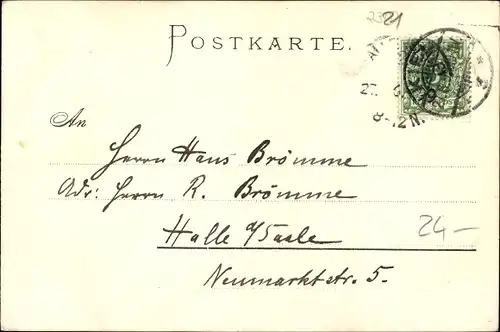 2321
POSTKARTE.
8-12 N.
An
Herrn Hans Brömme
Adr: Herrn R. Brömme
Halle a/Saale
24-
Neumarktstr. 5.